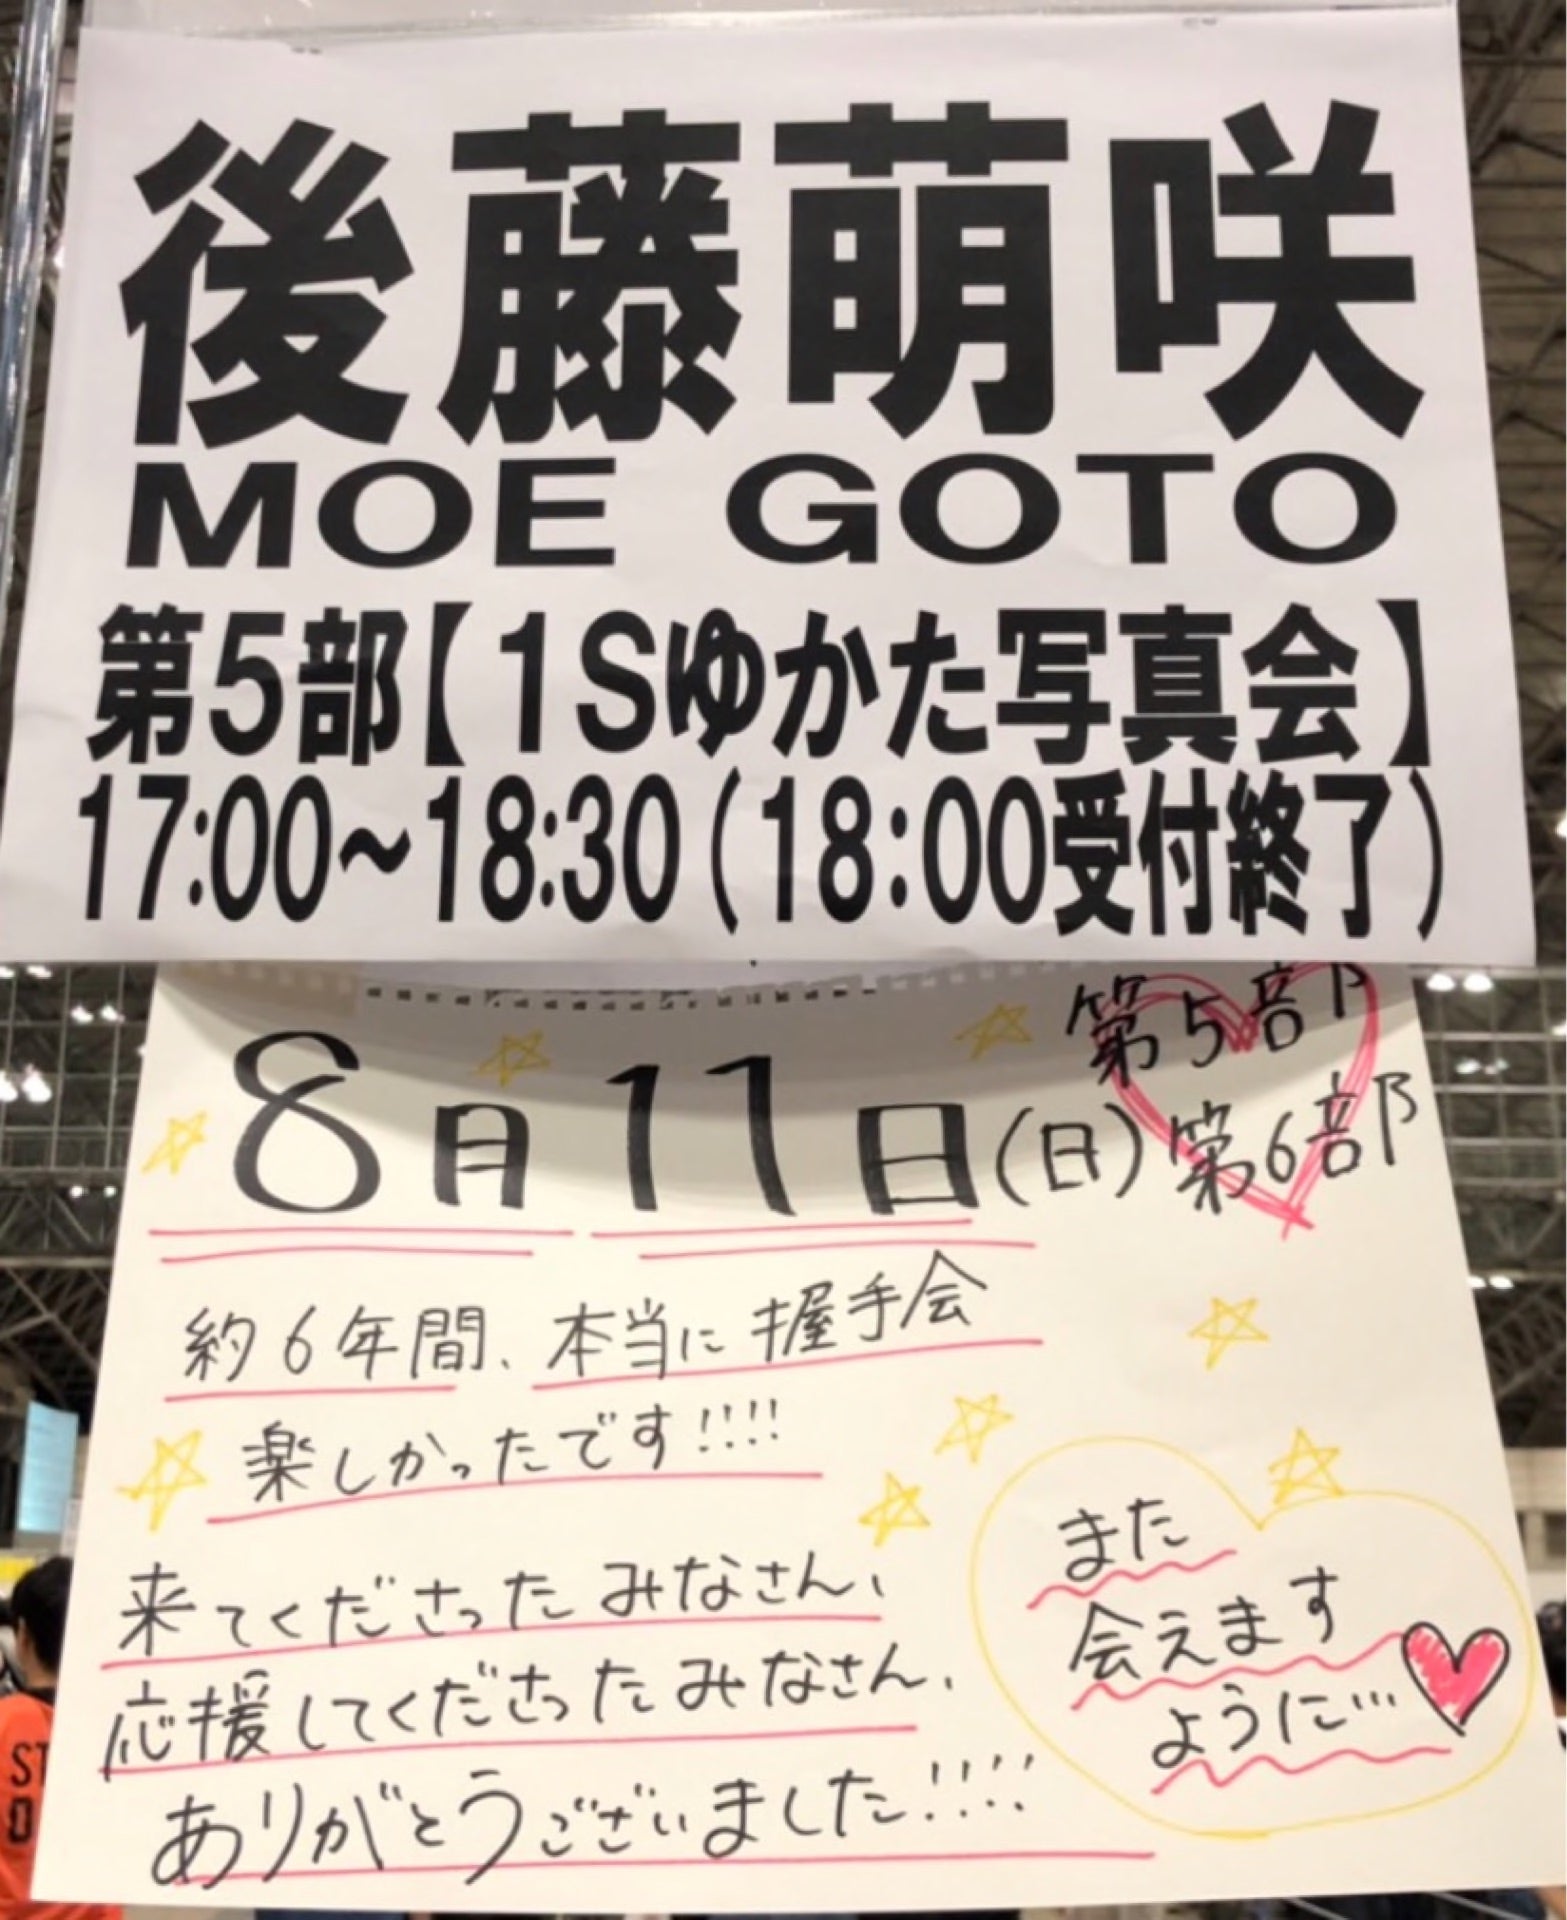 後藤萌咲
MOE GOTO
第5部【1Sゆかた写真会】
17:00~18:30(18:00受付終了)
第5部
8月11日(日)第6部
約6年間、本当に握手会
楽しかったです!!!!
来てくださったみなさん、
応援してくださったみなさん、
ありがとうございました!!!!
また
会えます
ように…
ST